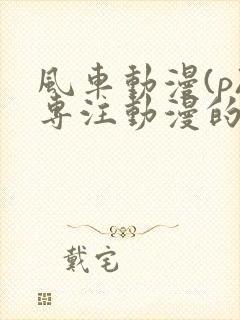 風車動漫(p
專注動漫的
戴宅